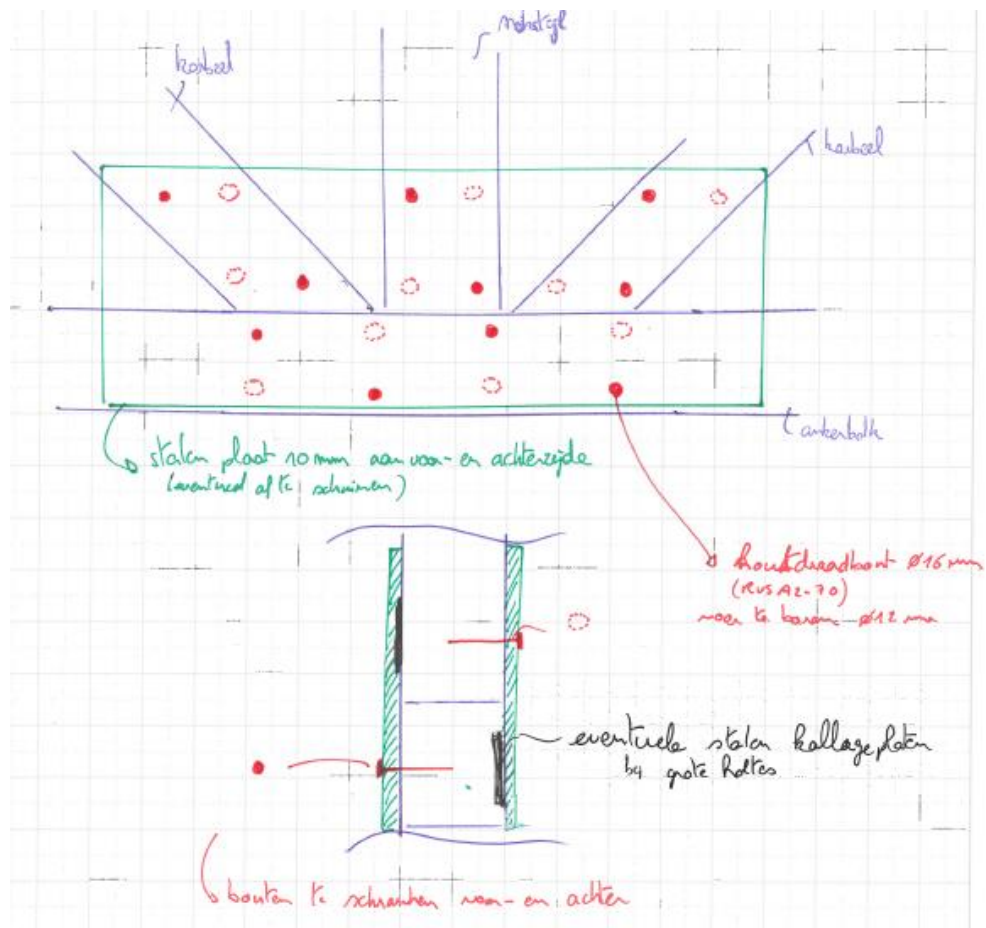 makelaarstijl
korbeel
korbeel
ankerbalk
stalen plaat 10 mm aan voor- en achterzijde
(eventueel af te schuinen)
houtdraadbout Ø16 mm
(RVS A2-70)
voor te boren Ø12 mm
eventuele stalen kallageplaten
bij grote holtes
bouten te schranken voor- en achter